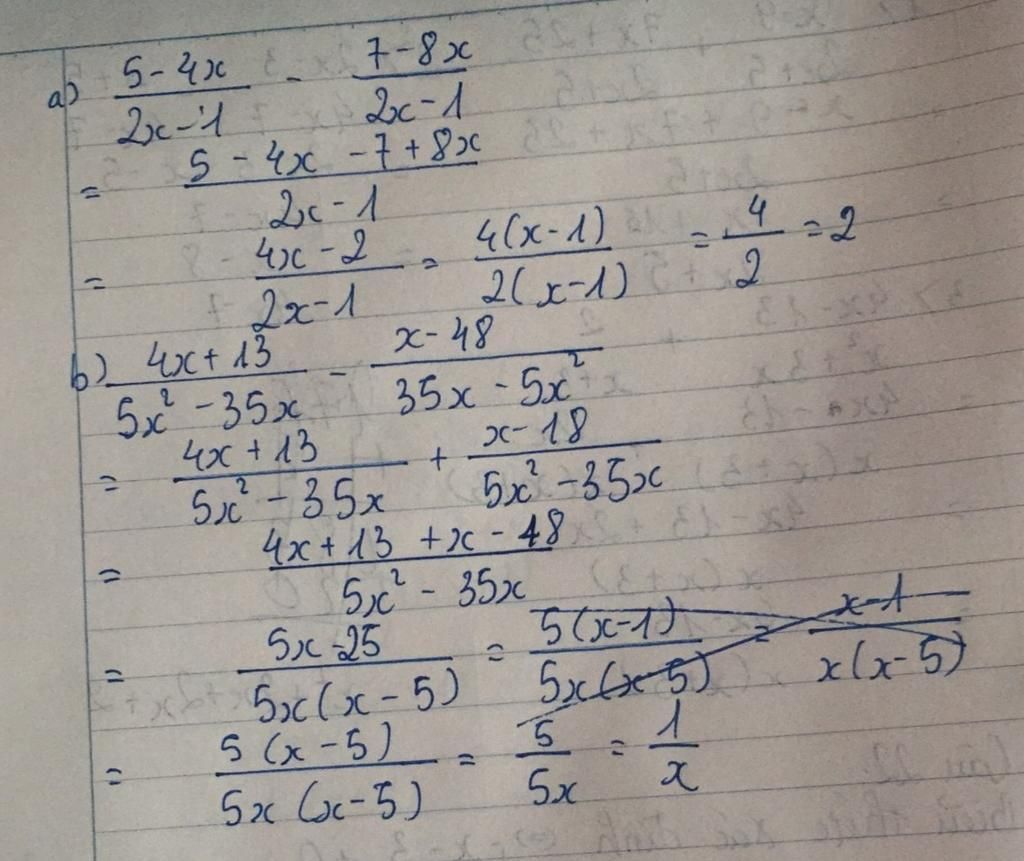 a) (5-4x)/(2x-1) - (7-8x)/(2x-1)
= (5-4x-7+8x)/(2x-1)
= (4x-2)/(2x-1) = 4(x-1)/2(x-1) = 4/2 = 2
b) (4x+13)/(5x²-35x) - (x-48)/(35x-5x²)
= (4x+13)/(5x²-35x) + (x-18)/(5x²-35x)
= (4x+13+x-48)/(5x²-35x)
= (5x-25)/5x(x-5) = 5(x-1)/5x(x-5) = (x-1)/x(x-5)
= 5(x-5)/5x(x-5) = 5/5x = 1/x